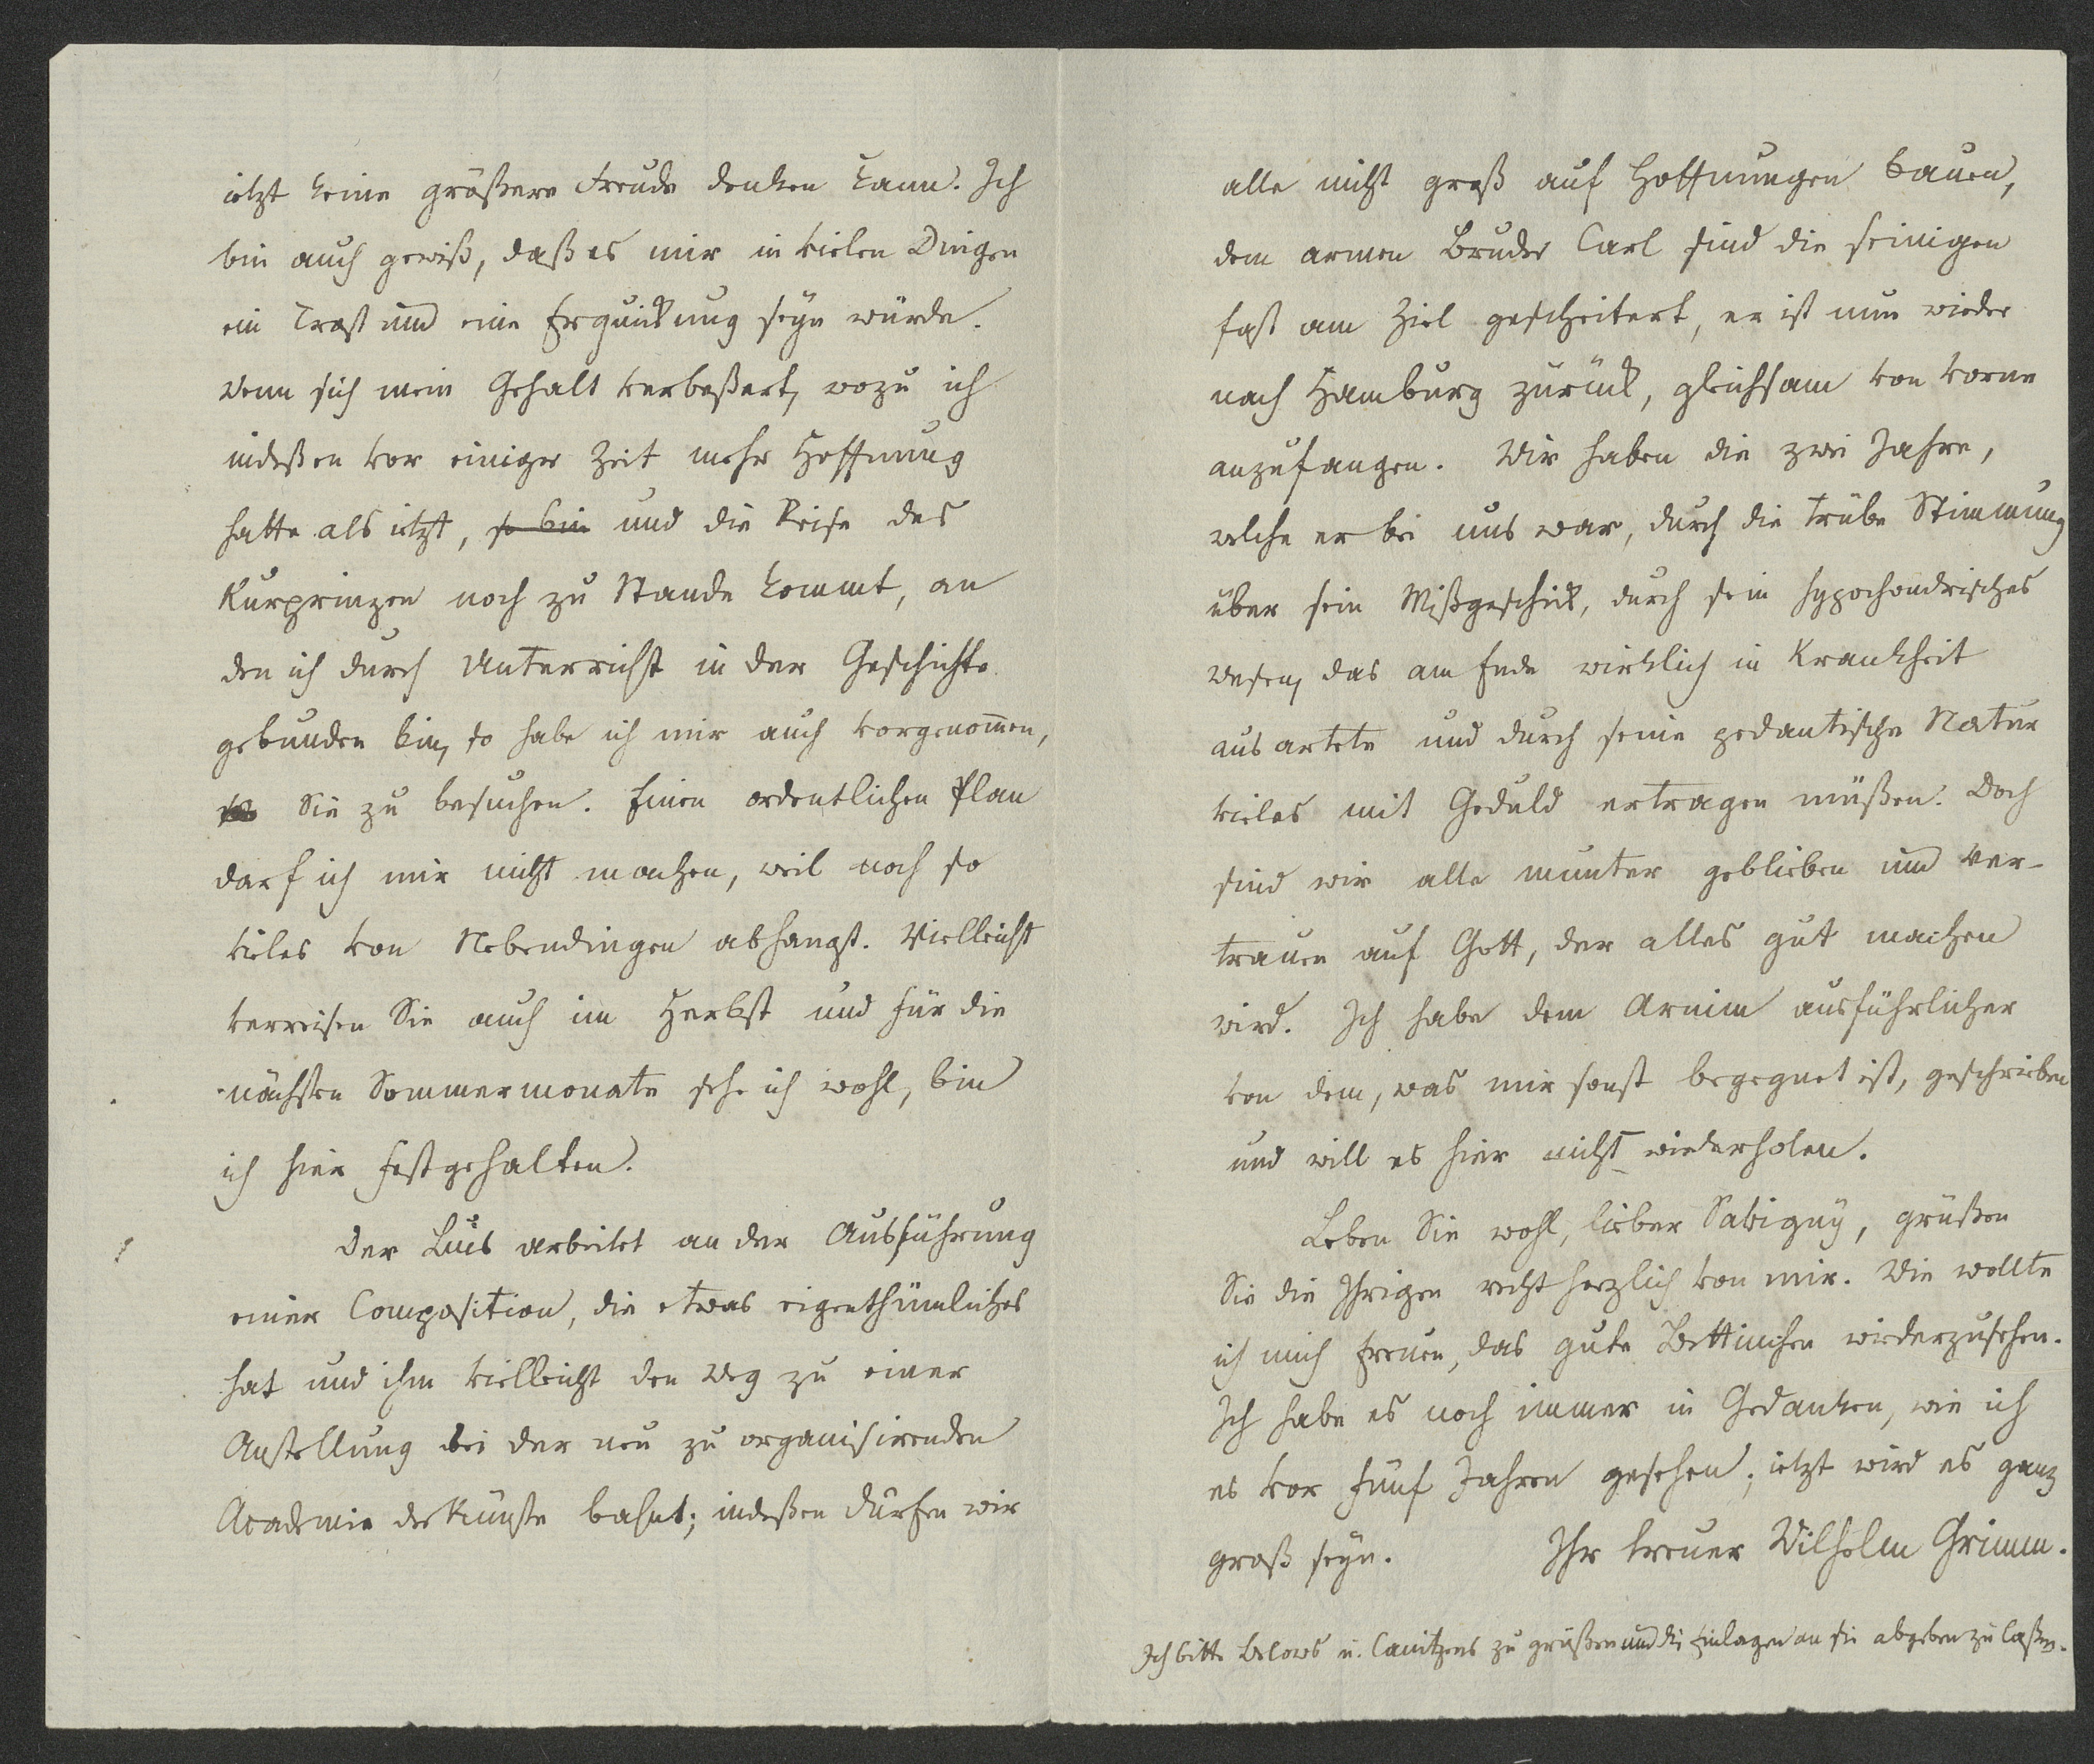 ietzt keine größere Freude denken kann. Ich
bin auch gewiß, daß es mir in vielen Dingen
ein Trost und eine Erquickung seyn würde.
Wenn sich mein Gehalt verbeßert, wozu ich
indeßen vor einiger Zeit mehr Hoffnung
hatte als ietzt, so bin und die Reise des
Kurprinzen noch zu Stande kommt, an
den ich durch Unterricht in der Geschichte
gebunden bin, so habe ich mir auch vorgenommen,
Sie zu besuchen. Einen ordentlichen Plan
darf ich mir nicht machen, weil noch so
vieles von Nebendingen abhängt. Vielleicht
verreisen Sie auch im Herbst und für die
nächsten Sommermonate sehe ich wohl, bin
ich hier festgehalten.
Der Luis arbeitet an der Ausführung
einer Composition, die etwas eigenthümliches
hat und ihm vielleicht den Weg zu einer
Anstellung bei der neu zu organisirenden
Academie der Künste bahnt; indeßen dürfen wir
alle nicht groß auf Hoffnungen bauen,
dem armen Bruder Carl sind die seinigen
fast am Ziel gescheitert, er ist nun wieder
nach Hamburg zurück, gleichsam von vorne
anzufangen. Wir haben die zwei Jahre,
welche er bei uns war, durch die trübe Stimmung
über sein Mißgeschick, durch sein hypochondrisches
Wesen, das am Ende wirklich in Krankheit
ausartete und durch seine pedantische Natur
vieles mit Geduld ertragen müßen. Doch
sind wir alle munter geblieben und ver-
trauen auf Gott, der alles gut machen
wird. Ich habe dem Arnim ausführlicher
von dem, was mir sonst begegnet ist, geschrieben
und will es hier nicht wiederholen.
Leben Sie wohl, lieber Savigny, grüßen
Sie die Ihrigen recht herzlich von mir. Wie wollte
ich mich freuen, das gute Bettinchen wiederzusehen.
Ich habe es noch immer in Gedanken, wie ich
es vor fünf Jahren gesehen; ietzt wird es ganz
groß seyn. Ihr treuer Wilhelm Grimm.
Ich bitte Belows u. Canitzens zu grüßen und die Einlagen an sie abgeben zu laßen.